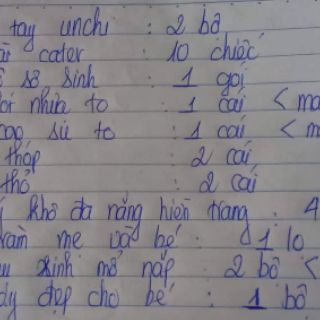 tay unchi : 2 bộ
cater : 10 chiếc
sơ sinh : 1 gói
nhựa to : 1 cái <
sứ to : 1 cái <
tháp : 2 cái
thỏ : 2 cái
khô đa năng hiền trang : 4
mẹ và bé : 1 lọ
xinh mở nắp : 2 bộ <
đẹp cho bé : 1 bộ